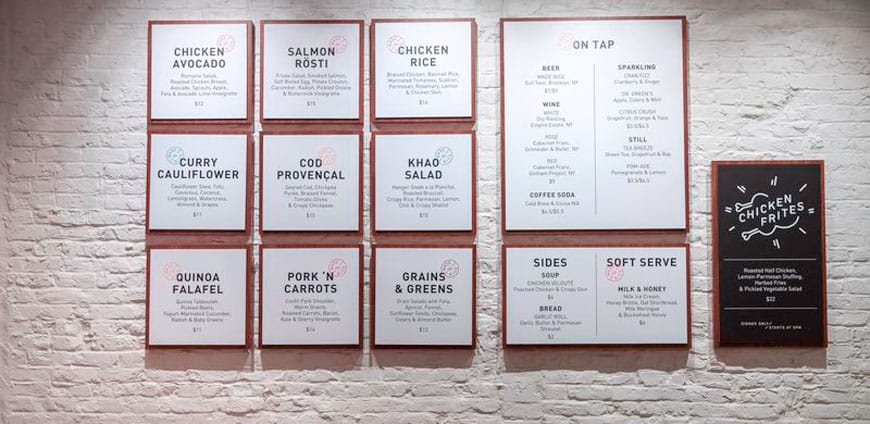 CHICKEN
AVOCADO
Romaine Salad,
Roasted Chicken Breast,
Avocado, Sprouts, Apple,
Feta & Avocado-Lime Vinaigrette
$12
SALMON
RÖSTI
Frisée Salad, Smoked Salmon,
Soft Boiled Egg, Potato Crouton,
Cucumber, Radish, Pickled Onions
& Buttermilk Vinaigrette
$15
CHICKEN
RICE
Braised Chicken, Basmati Rice,
Marinated Tomatoes, Scallion,
Parmesan, Rosemary, Lemon
& Chicken Skin
$14
CURRY
CAULIFLOWER
Cauliflower Stew, Tofu,
Couscous, Coconut,
Lemongrass, Watercress,
Almond & Grapes
$11
COD
PROVENÇAL
Seared Cod, Chickpea
Purée, Braised Fennel,
Tomato, Olives
& Crispy Chickpeas
$15
KHAO
SALAD
Hanger Steak a la Plancha,
Roasted Broccoli,
Crispy Rice, Parmesan, Lemon,
Chili & Crispy Shallot
$15
QUINOA
FALAFEL
Quinoa Tabbouleh,
Pickled Beets,
Yogurt-Marinated Cucumber,
Radish & Baby Greens
$11
PORK 'N
CARROTS
Confit Pork Shoulder,
Warm Grains,
Roasted Carrots, Bacon,
Kale & Sherry Vinaigrette
$14
GRAINS
& GREENS
Grain Salads with Feta,
Apricot, Fennel,
Sunflower Seeds, Chickpeas,
Celery & Almond Butter
$12
ON TAP
BEER
MADE RICE
Evil Twin, Brooklyn, NY
WINE
WHITE
Dry Riesling,
Empire Estate, NY
ROSÉ
Cabernet Franc,
Schneider & Bieler, NY
RED
Cabernet Franc,
Gotham Project, NY
$9
COFFEE SODA
Cold Brew & Cocoa Nib
$4.5/$5.5
SPARKLING
CRAN FIZZ
Cranberry & Ginger
DR. GREEN'S
Apple, Celery & Mint
CITRUS CRUSH
Grapefruit, Orange & Yuzu
$3.5/$4.5
STILL
TEA BREEZE
Green Tea, Grapefruit & Bay
POM-ADE
Pomegranate & Lemon
$3.5/$4.5
SIDES
SOUP
CHICKEN VELOUTÉ
Poached Chicken & Crispy Skin
$4
BREAD
GARLIC ROLL
Garlic Butter & Parmesan
Streusel
$2
SOFT SERVE
MILK & HONEY
Milk Ice Cream,
Honey Brittle, Oat Shortbread,
Milk Meringue
& Buckwheat Honey
$6
CHICKEN
FRITES
Roasted Half Chicken,
Lemon-Parmesan Stuffing,
Herbed Fries
& Pickled Vegetable Salad
$22
DINNER ONLY
STARTS AT 5PM